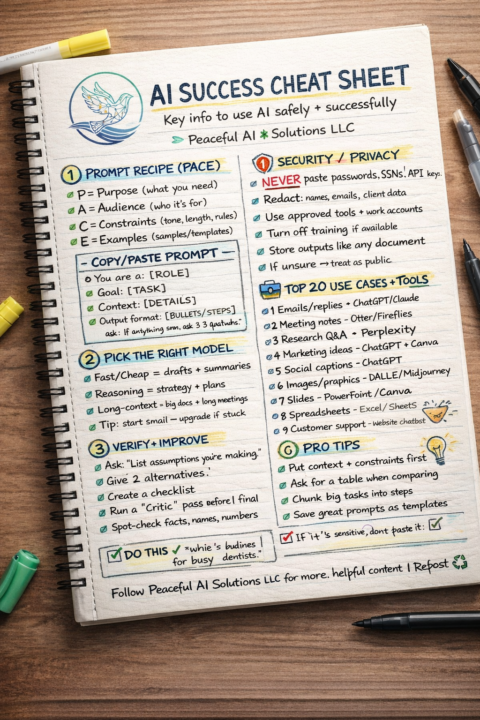 AI SUCCESS CHEAT SHEET
Key info to use AI safely + successfully
Peaceful AI ✱ Solutions LLC
1 PROMPT RECIPE (PACE)
P = Purpose (what you need)
A = Audience (who it's for)
C = Constraints (tone, length, rules)
E = Examples (samples/templates)
- COPY/PASTE PROMPT -
You are a: [ROLE]
Goal: [TASK]
Context: [DETAILS]
Output format: [BULLETS/STEPS]
ask: If ask 3
2 PICK THE RIGHT MODEL
Fast/Cheap = drafts + summaries
Reasoning = strategy + plans
Long-context = big docs + long meetings
Tip: start small – upgrade if stuck
3 VERIFY + IMPROVE
Ask: "List assumptions you're making."
Give 2 alternatives.'
Create a checklist
Run a "Critic" pass before I final
Spot-check facts, names, numbers
DO THIS ✓ "whie's budines |
for busy dentists."
1 SECURITY / PRIVACY
NEVER paste passwords, SSNs, API key.
Redact: names, emails, client data
Use approved tools + work accounts
Turn off training if available
Store outputs like any document
If unsure → treat as public.
TOP 20 USE CASES + TOOLS
1 Emails/replies • ChatGPT/Claude
2 Meeting notes - Otter/Fireflies
3 Research Q&A • Perplexity
4 Marketing ideas - ChatGPT + Canva
5 Social captions - ChatGPT
6 Images/praphics - DALLE/Midjourney
7 Slides - PowerPoint /Canva
8 Spreadsheets - Excel/ Sheets
9 Customer support - website chatbot
G PRO TIPS
Put context + constraints first
Ask for a table when comparing
Chunk big tasks into steps
Save great prompts as templates
If it's sensitive, dont paste it:
Follow Peaceful AI Solutions LLC for more. helpful content | Repost